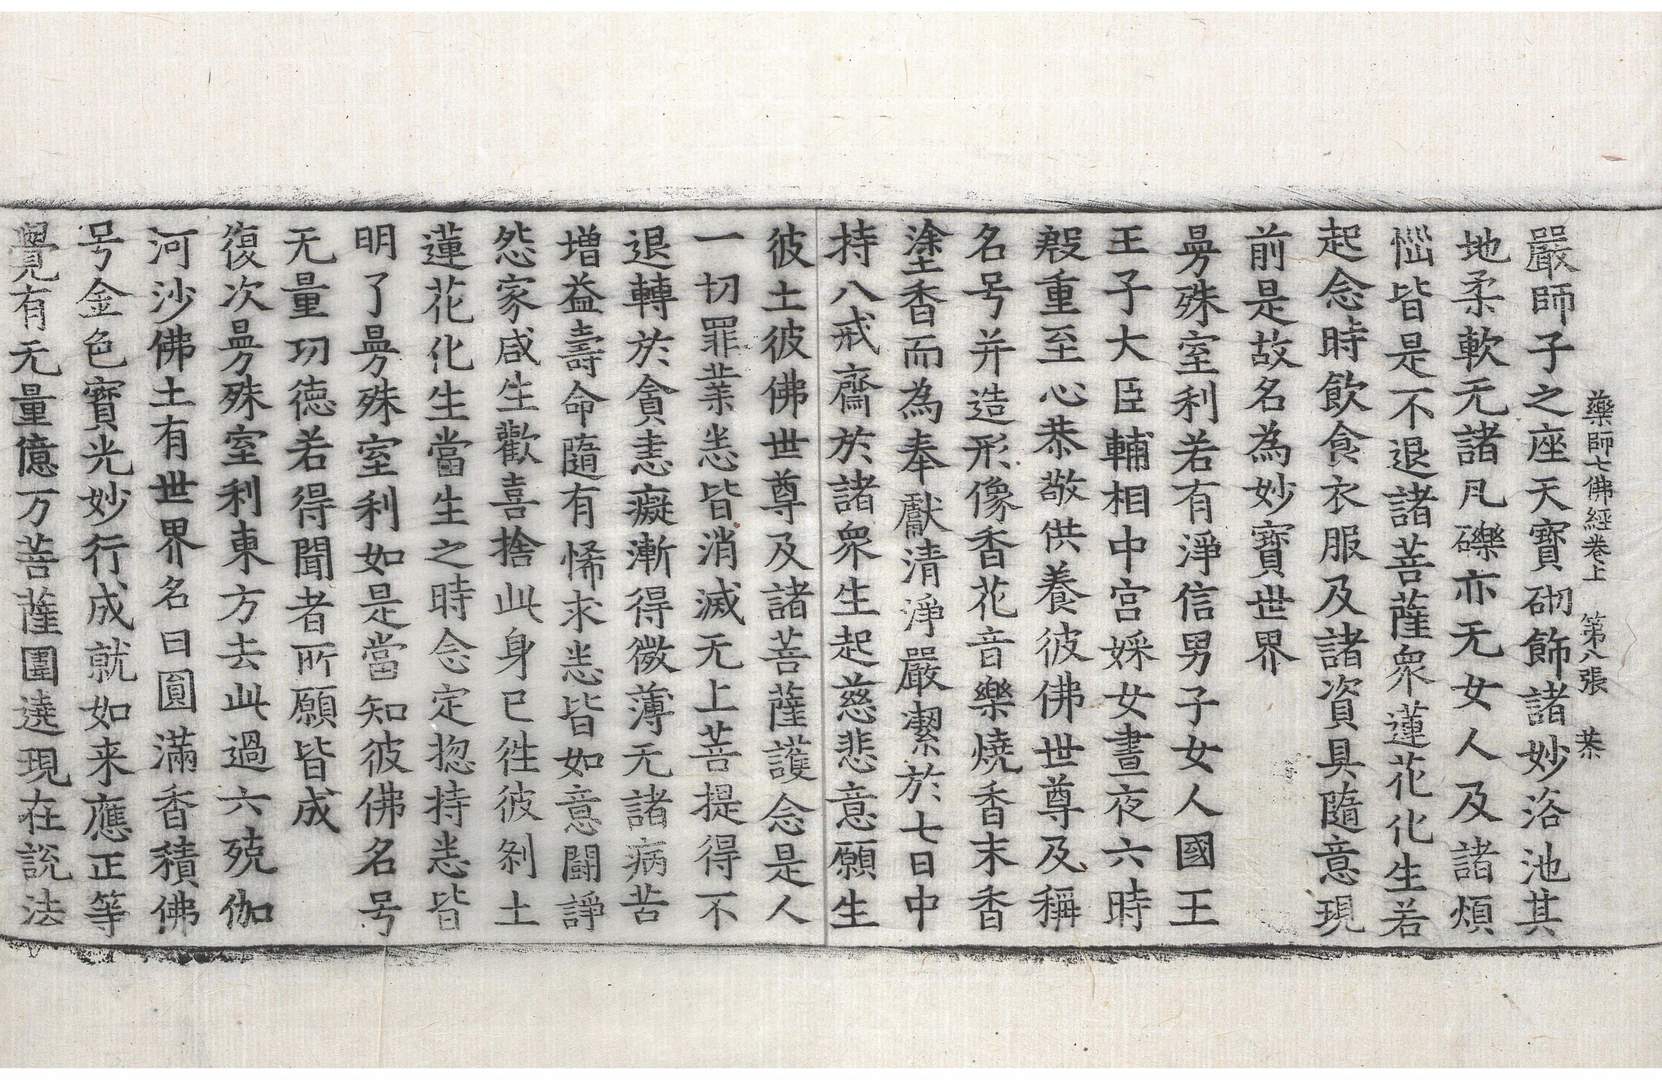 藥師七佛經卷上 第八張 恭
嚴師子之座天寶砌飾諸妙浴池其
地柔軟无諸凡礫亦无女人及諸煩
惱皆是不退諸菩薩衆蓮花化生若
起念時飲食衣服及諸資具隨意現
前是故名為妙寶世界
曼殊室利若有淨信男子女人國王
王子大臣輔相中宮婇女晝夜六時
殷重至心恭敬供養彼佛世尊及稱
名号并造形像香花音樂燒香末香
塗香而為奉獻清淨嚴潔於七日中
持八戒齋於諸衆生起慈悲意願生
彼土彼佛世尊及諸菩薩護念是人
一切罪業悉皆消滅无上菩提得不
退轉於貪恚癡漸得微薄无諸病苦
增益壽命隨有悕求悉皆如意闘諍
怨家咸生歡喜捨此身已徃彼刹土
蓮花化生當生之時念定惣持悉皆
明了曼殊室利如是當知彼佛名号
无量功德若得聞者所願皆成
復次曼殊室利東方去此過六殑伽
河沙佛土有世界名曰圓滿香積佛
号金色寶光妙行成就如来應正等
覺有无量億万菩薩圍遶現在說法